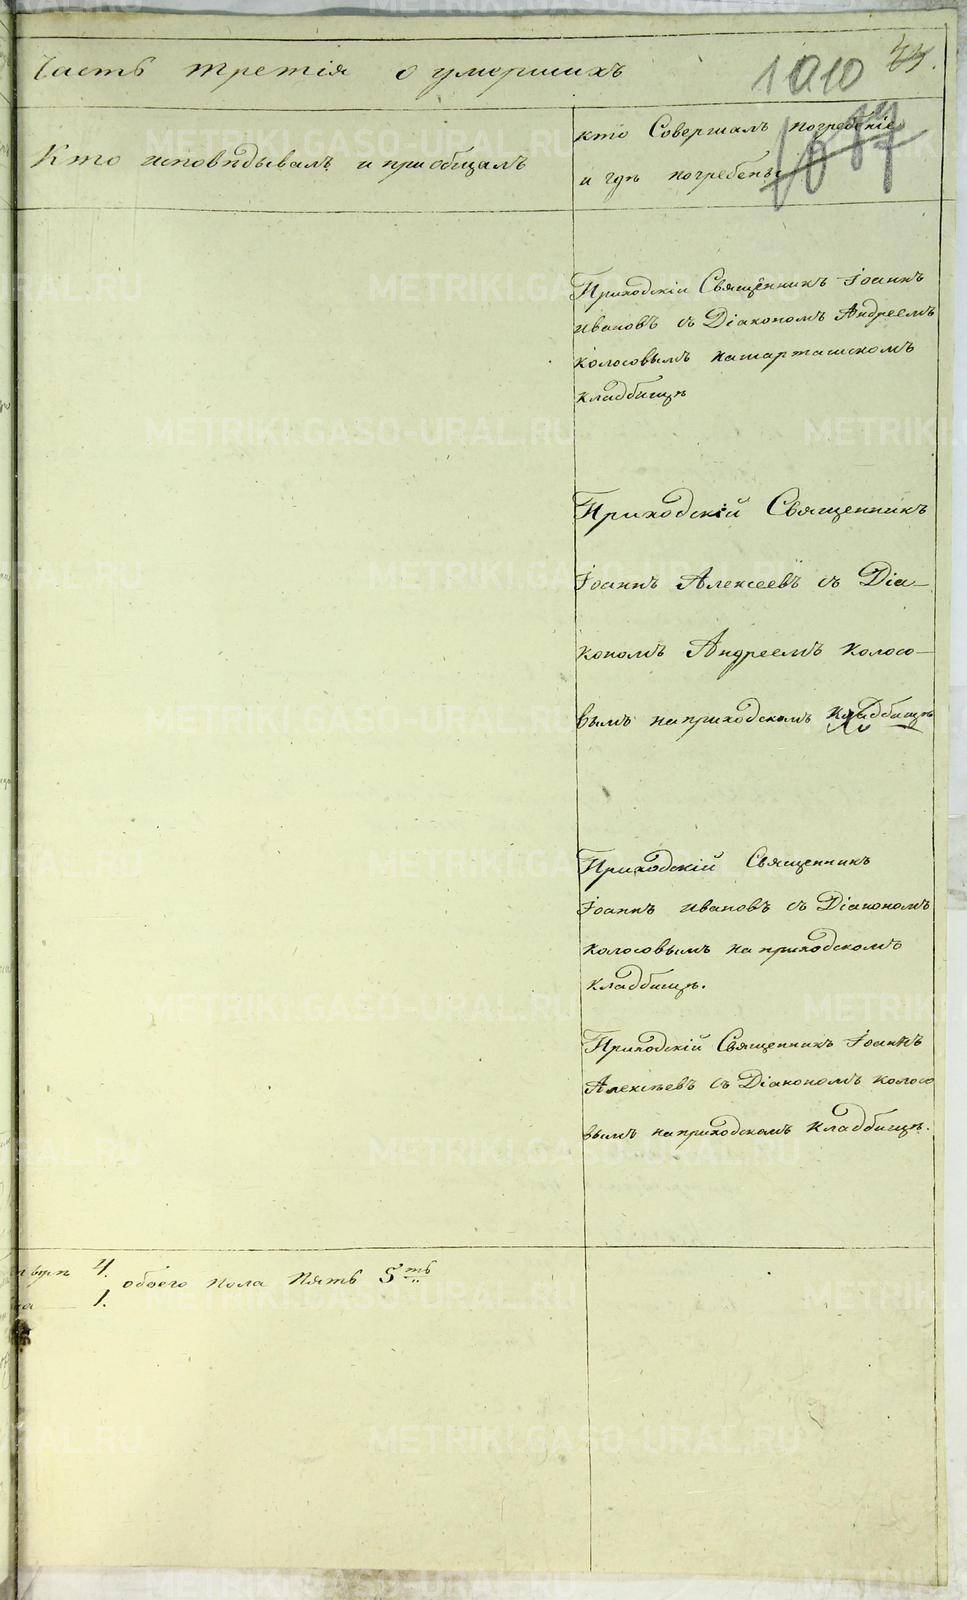 Часть третія о умершихъ
1010
Кто исповѣдывалъ и приобщалъ
кто Совершалъ погребеніе
и гдѣ погребены
Приходскіи Священникъ Іоаннъ
ивановъ съ Діакономъ Андреемъ
колосовымъ нашарташском
кладбищѣ
Приходскій Священникъ
Іоаннъ Алексеевъ съ Діа–
кономъ Андреемъ колосо–
вымъ наприходскомъ кладбищѣ
Приходскій Священникъ
Іоаннъ ивановъ съ Діакономъ
колосовымъ на приходскомъ
кладбищѣ.
Приходскій Священникъ Іоаннъ
Алексѣевъ съ Діакономъ колосо
вымъ наприходскомъ кладбищѣ.
4. обоего пола пять 5ть
1.
METRIKI.GASO-URAL.RU